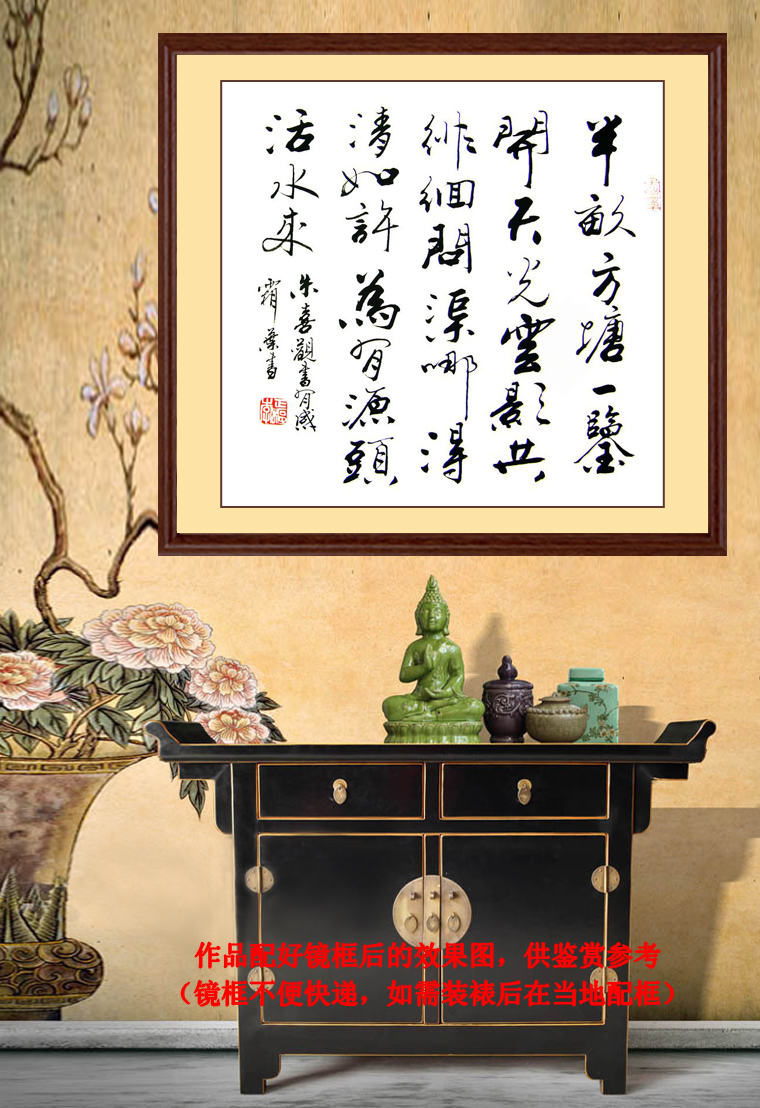 半畝方塘一鑒
開天光雲影共
徘徊問渠哪得
清如許為有源頭
活水來
朱喜觀書有感
葉書
作品配好镜框后的效果图，供鉴赏参考
（镜框不便快递，如需装裱后在当地配框）